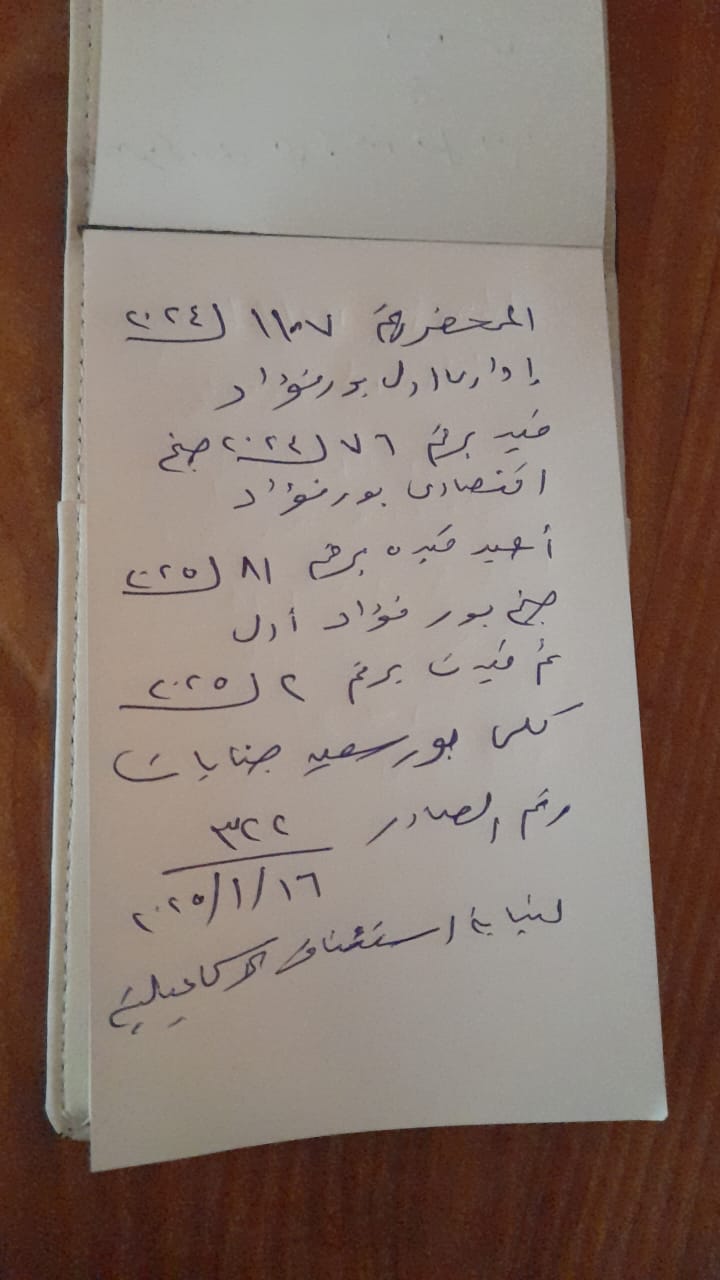 المحضر رقم ١١٠٧ لـ ٢٠٢٤
إدارى اول بورفؤاد
قيد برقم ٧٦ لـ ٢٠٢٤ جنح
اقتصادى بورفؤاد
أعيد قيده برقم ٨١ لـ ٢٠٢٥
جنح بور فؤاد أول
ثم قيدت برقم ٢ لـ ٢٠٢٥
كلى بورسعيد جنايات
رقم الصادر ٣٢٢
٢٠٢٥/١/١٦
لنيابة استئناف الاسماعيلية